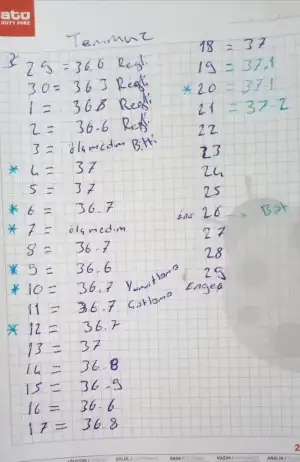 ato
DUTY FREE
Temmuz
29 = 36.6 Regl.
30 = 36.3 Regl.
1 = 36.8 Regl.
2 = 36.6 Regl.
3 = ölçmedim Bitti
* 4 = 37
5 = 37
* 6 = 36.7
* 7 = ölçmedim
8 = 36.7
* 9 = 36.6
* 10 = 36.7 Yumurtlama
11 = 36.7 Çatlama Engeç
* 12 = 36.7
13 = 37
14 = 36.8
15 = 36.9
16 = 36.6
17 = 36.8
18 = 37
19 = 37.1
* 20 = 37.1
21 = 37.2
22
23
24
25
26 → Bat
27
28
29
2